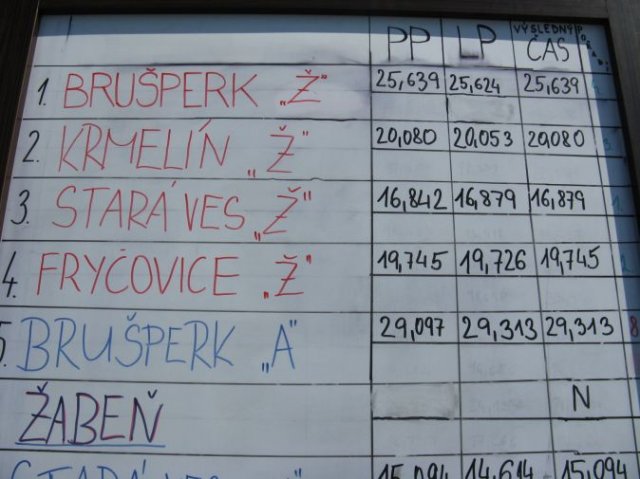 PP LP VÝSLEDNÝ ČAS
1. BRUŠPERK „Ž" 25,639 25,624 25,639
2. KRMELÍN „Ž" 20,080 20,053 20,080
3. STARÁ VES „Ž" 16,842 16,879 16,879
4. FRYČOVICE „Ž" 19,745 19,726 19,745
5. BRUŠPERK „A" 29,097 29,313 29,313 8
ŽABEŇ N
STARÁ VES 15,094 14,614 15,094